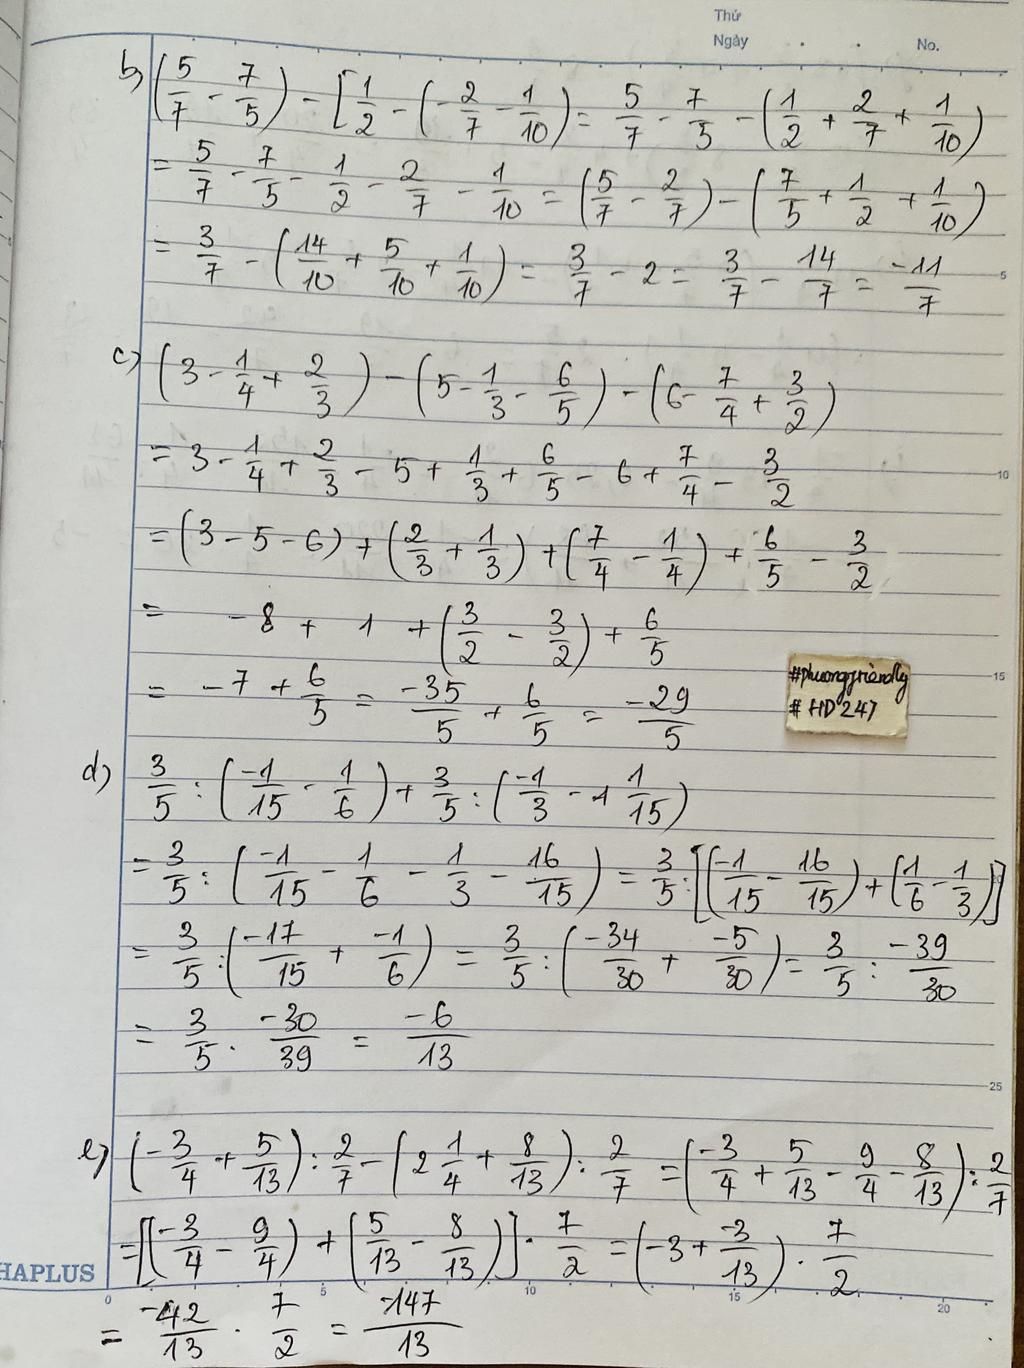 Thứ
Ngày . . No.
b) (5/7 - 7/5) - [1/2 - (-2/7 - 1/10) = 5/7 - 7/5 - (1/2 + 2/7 + 1/10)
= 5/7 - 7/5 - 1/2 - 2/7 - 1/10 = (5/7 - 2/7) - (7/5 + 1/2 + 1/10)
= 3/7 - (14/10 + 5/10 + 1/10) = 3/7 - 2 = 3/7 - 14/7 = -11/7
5
c) (3 - 1/4 + 2/3) - (5 - 1/3 - 6/5) - (6 - 7/4 + 3/2)
= 3 - 1/4 + 2/3 - 5 + 1/3 + 6/5 - 6 + 7/4 - 3/2
10
= (3 - 5 - 6) + (2/3 + 1/3) + (7/4 - 1/4) + 6/5 - 3/2
= -8 + 1 + (3/2 - 3/2) + 6/5
= -7 + 6/5 = -35/5 + 6/5 = -29/5
#phuongfriendly
# HD247
15
d) 3/5 : (-1/15 - 1/6) + 3/5 : (-1/3 - 1 1/15)
= 3/5 : (-1/15 - 1/6 - 1/3 - 16/15) = 3/5 : [(-1/15 - 16/15) + (1/6 - 1/3)]
= 3/5 : (-17/15 + -1/6) = 3/5 : (-34/30 + -5/30) = 3/5 : -39/30
= 3/5 . -30/39 = -6/13
25
e) (-3/4 + 5/13) : 2/7 - (2 1/4 + 8/13) : 2/7 = (-3/4 + 5/13 - 9/4 - 8/13) : 2/7
= [(-3/4 - 9/4) + (5/13 - 8/13)] . 7/2 = (-3 + -3/13) . 7/2
HAPLUS
0 5 10 15 20
= -42/13 . 7/2 = -147/13